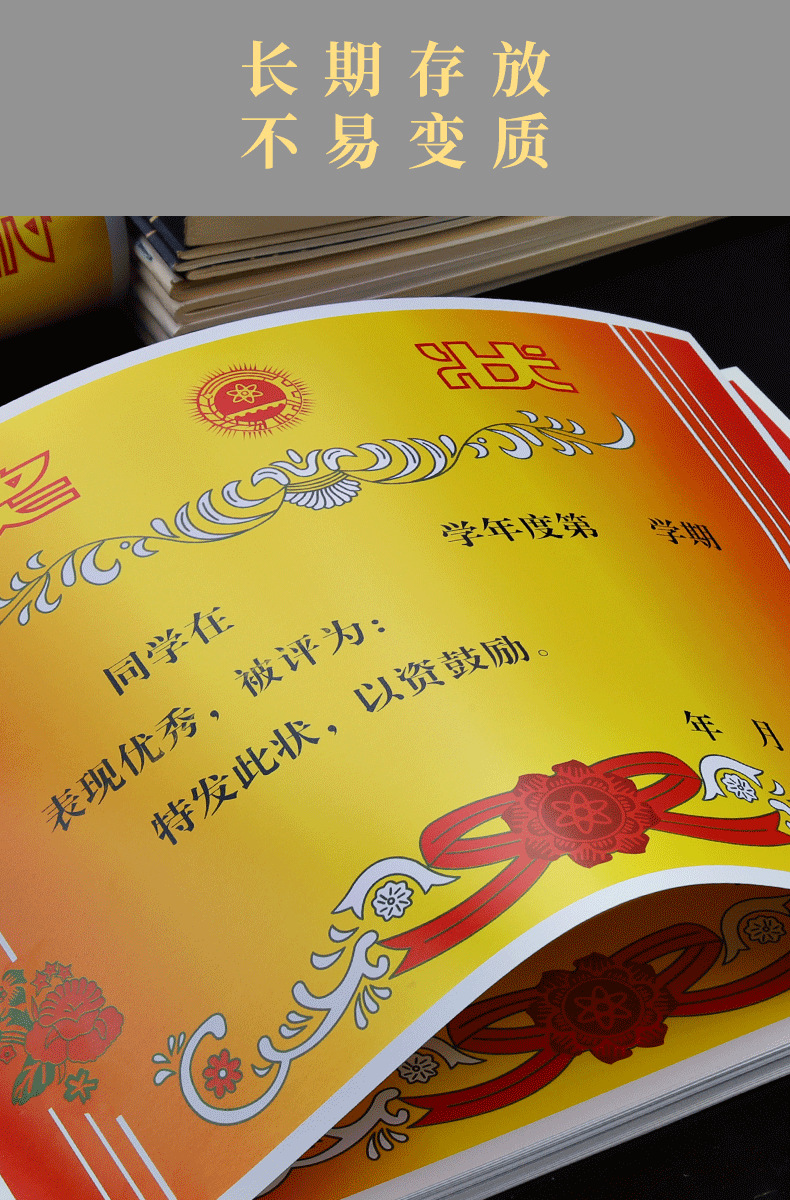 长期存放
不易变质
状
学年度第 学期
同学在
表现优秀，被评为：
特发此状，以资鼓励。
年 月